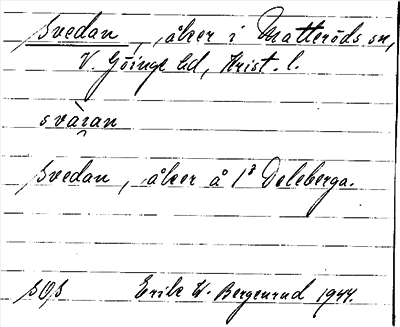 Svedan, åker i Matteröds sn,
V. Göinge hd, Krist. l.
svä̀ran
Svedan, åker å 1³ Deleberga.
SOS Erik W. Bergenrud 1944.